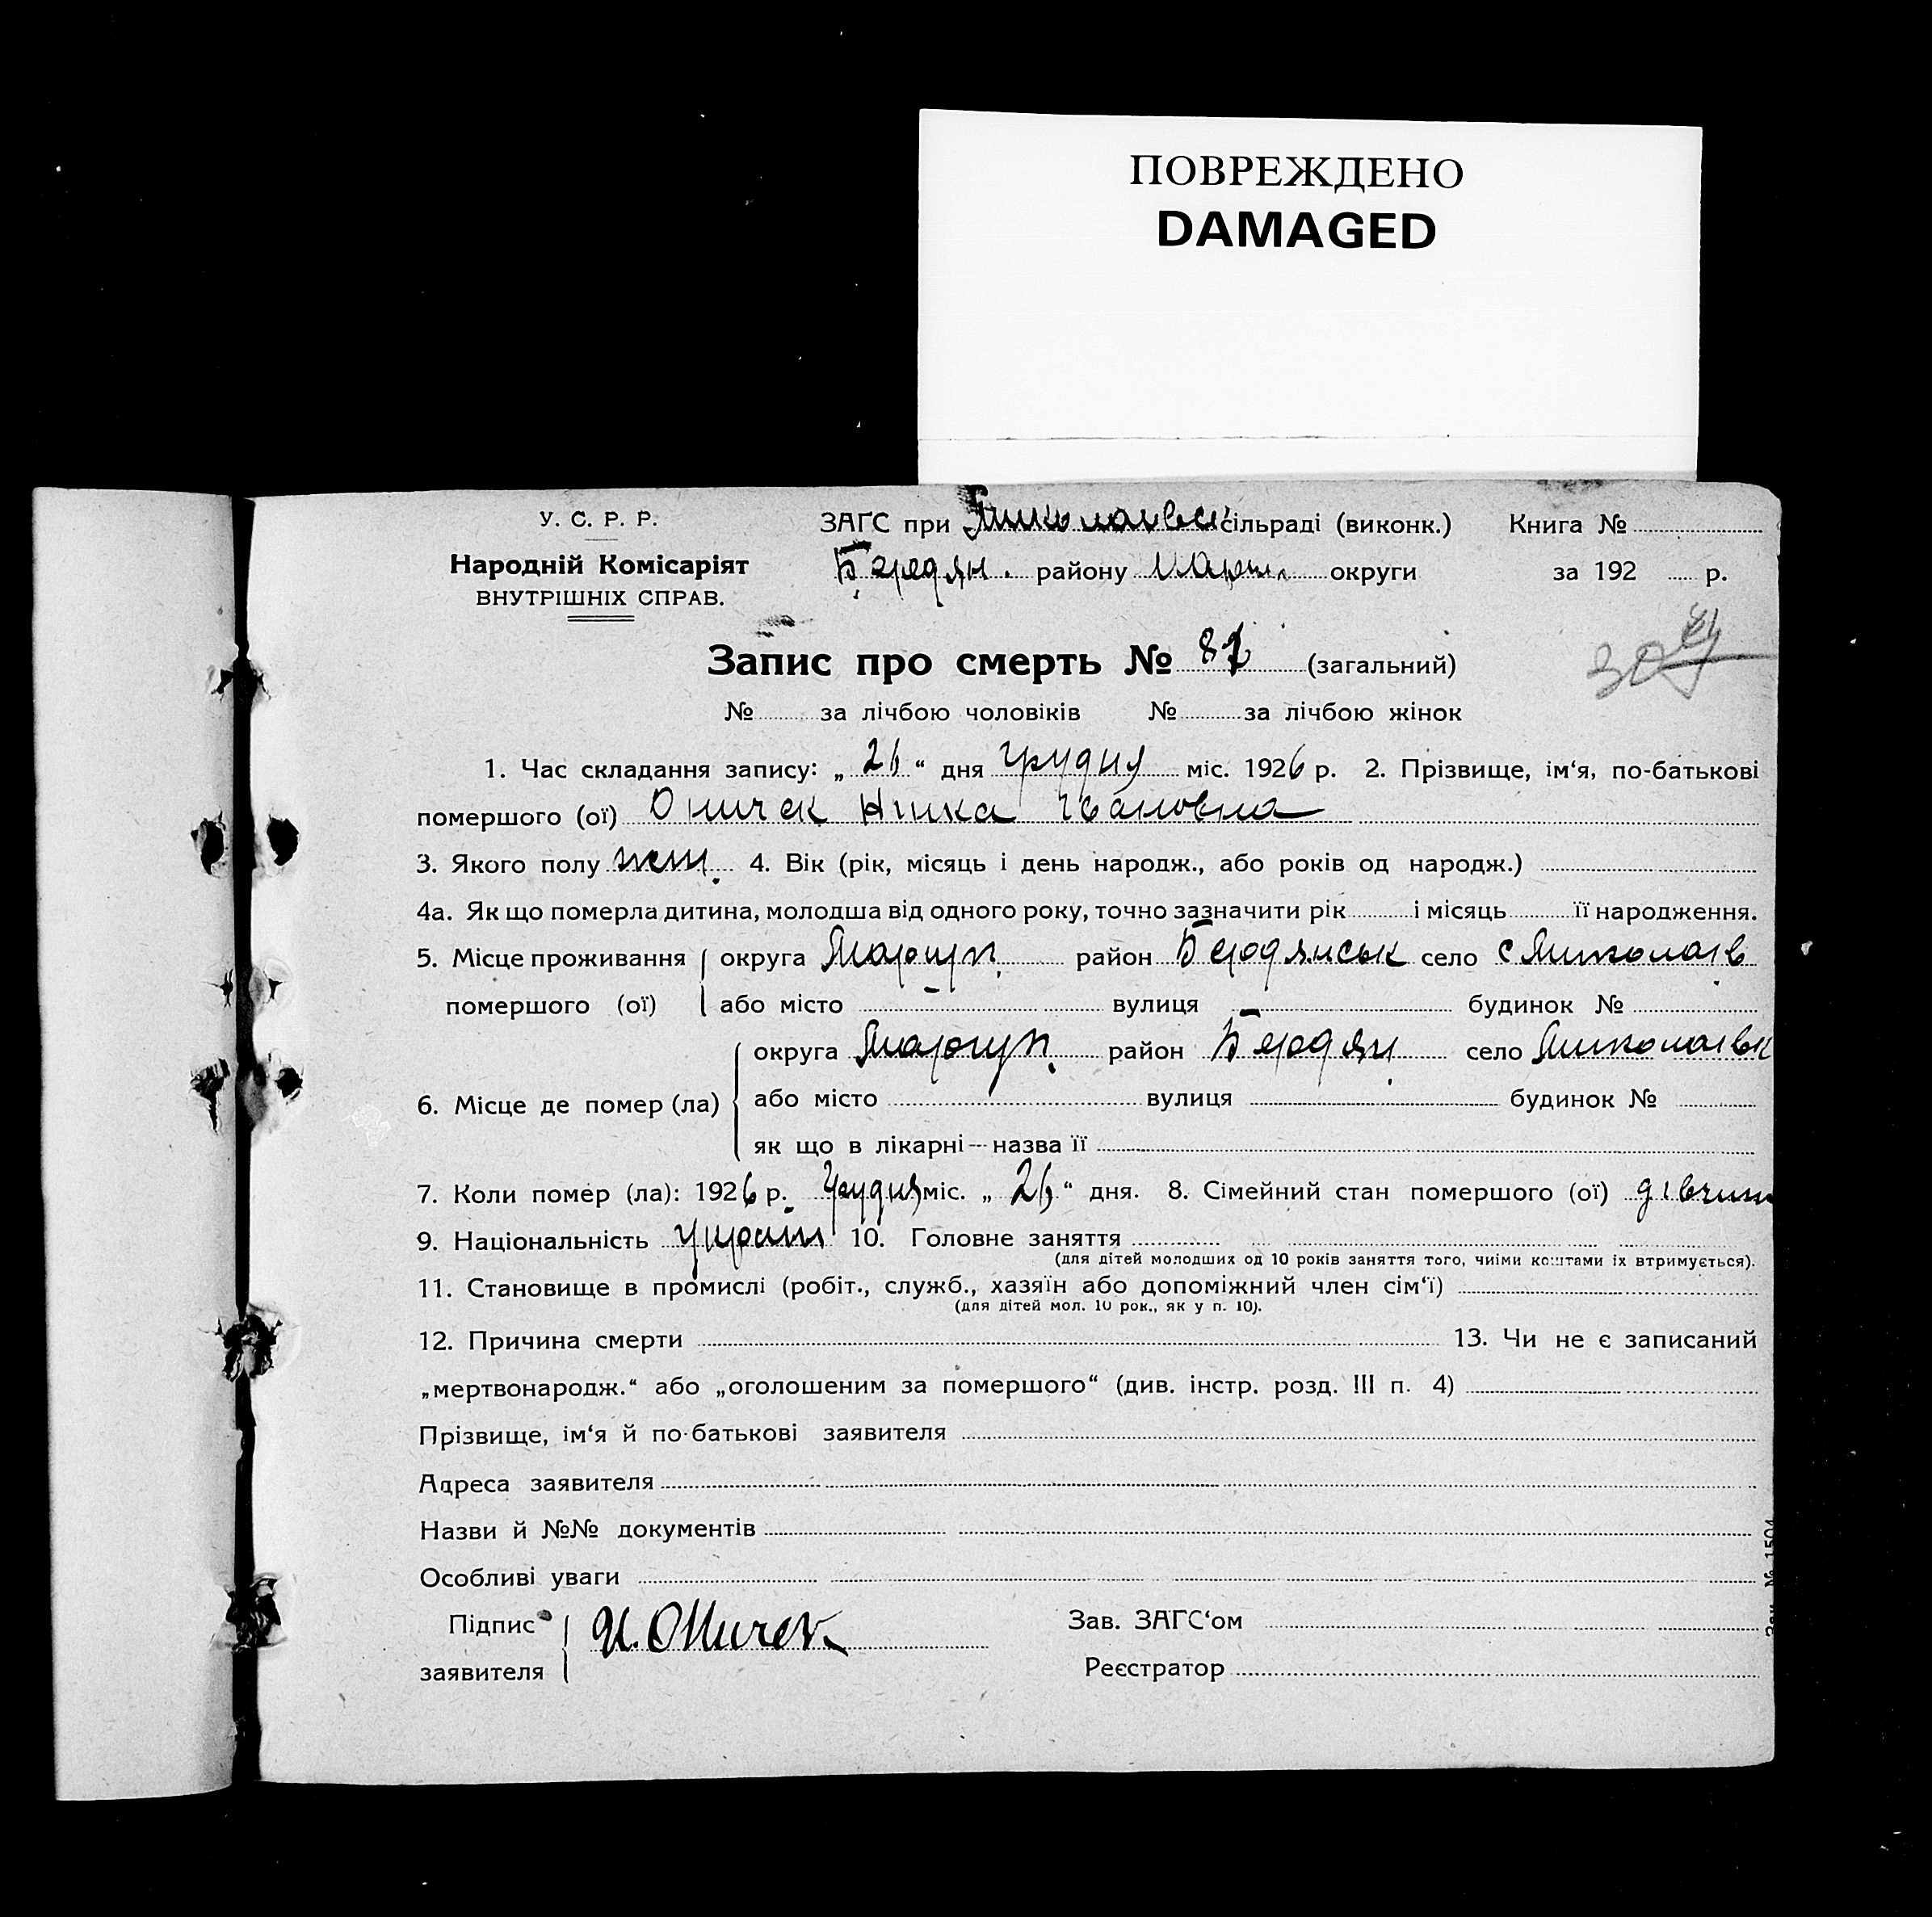 ПОВРЕЖДЕНО
DAMAGED
У. С. Р. Р.
Народній Комісаріят
ВНУТРІШНІХ СПРАВ.
ЗАГС при Миколаивск сільраді (виконк.) Книга №
Бердян. району Марі. округи за 192 р.
Запис про смерть № 82 (загальний)
№ за лічбою чоловіків № за лічбою жінок
1. Час складання запису: „ 26 “ дня грудня міс. 1926 р. 2. Прізвище, ім‘я, по-батькові
помершого (ої) Оничек Нина Ивановна
3. Якого полу жин. 4. Вік (рік, місяць і день народж., або років од народж.)
4а. Як що померла дитина, молодша від одного року, точно зазначити рік і місяць її народження.
5. Місце проживання округа Маріуп. район Бердянськ село с Миколаів
помершого (ої) або місто вулиця будинок №
округа Маріуп. район Бердян. село Миколаівк
6. Місце де помер (ла) або місто вулиця будинок №
як що в лікарні — назва її
7. Коли помер (ла): 1926 р. Грудня міс. „ 26 “ дня. 8. Сімейний стан помершого (ої) дівчин
9. Національність україн 10. Головне заняття
(для дітей молодших од 10 років заняття того, чиїми коштами їх втримується).
11. Становище в промислі (робіт., служб., хазяїн або допоміжний член сім‘ї)
(для дітей мол. 10 рок., як у п. 10).
12. Причина смерти 13. Чи не є записаний
„мертвонародж.“ або „оголошеним за помершого“ (див. інстр. розд. III п. 4)
Прізвище, ім‘я й по-батькові заявителя
Адреса заявителя
Назви й №№ документів
Особливі уваги
Підпис И. Оничек Зав. ЗАГС‘ом
заявителя Реєстратор